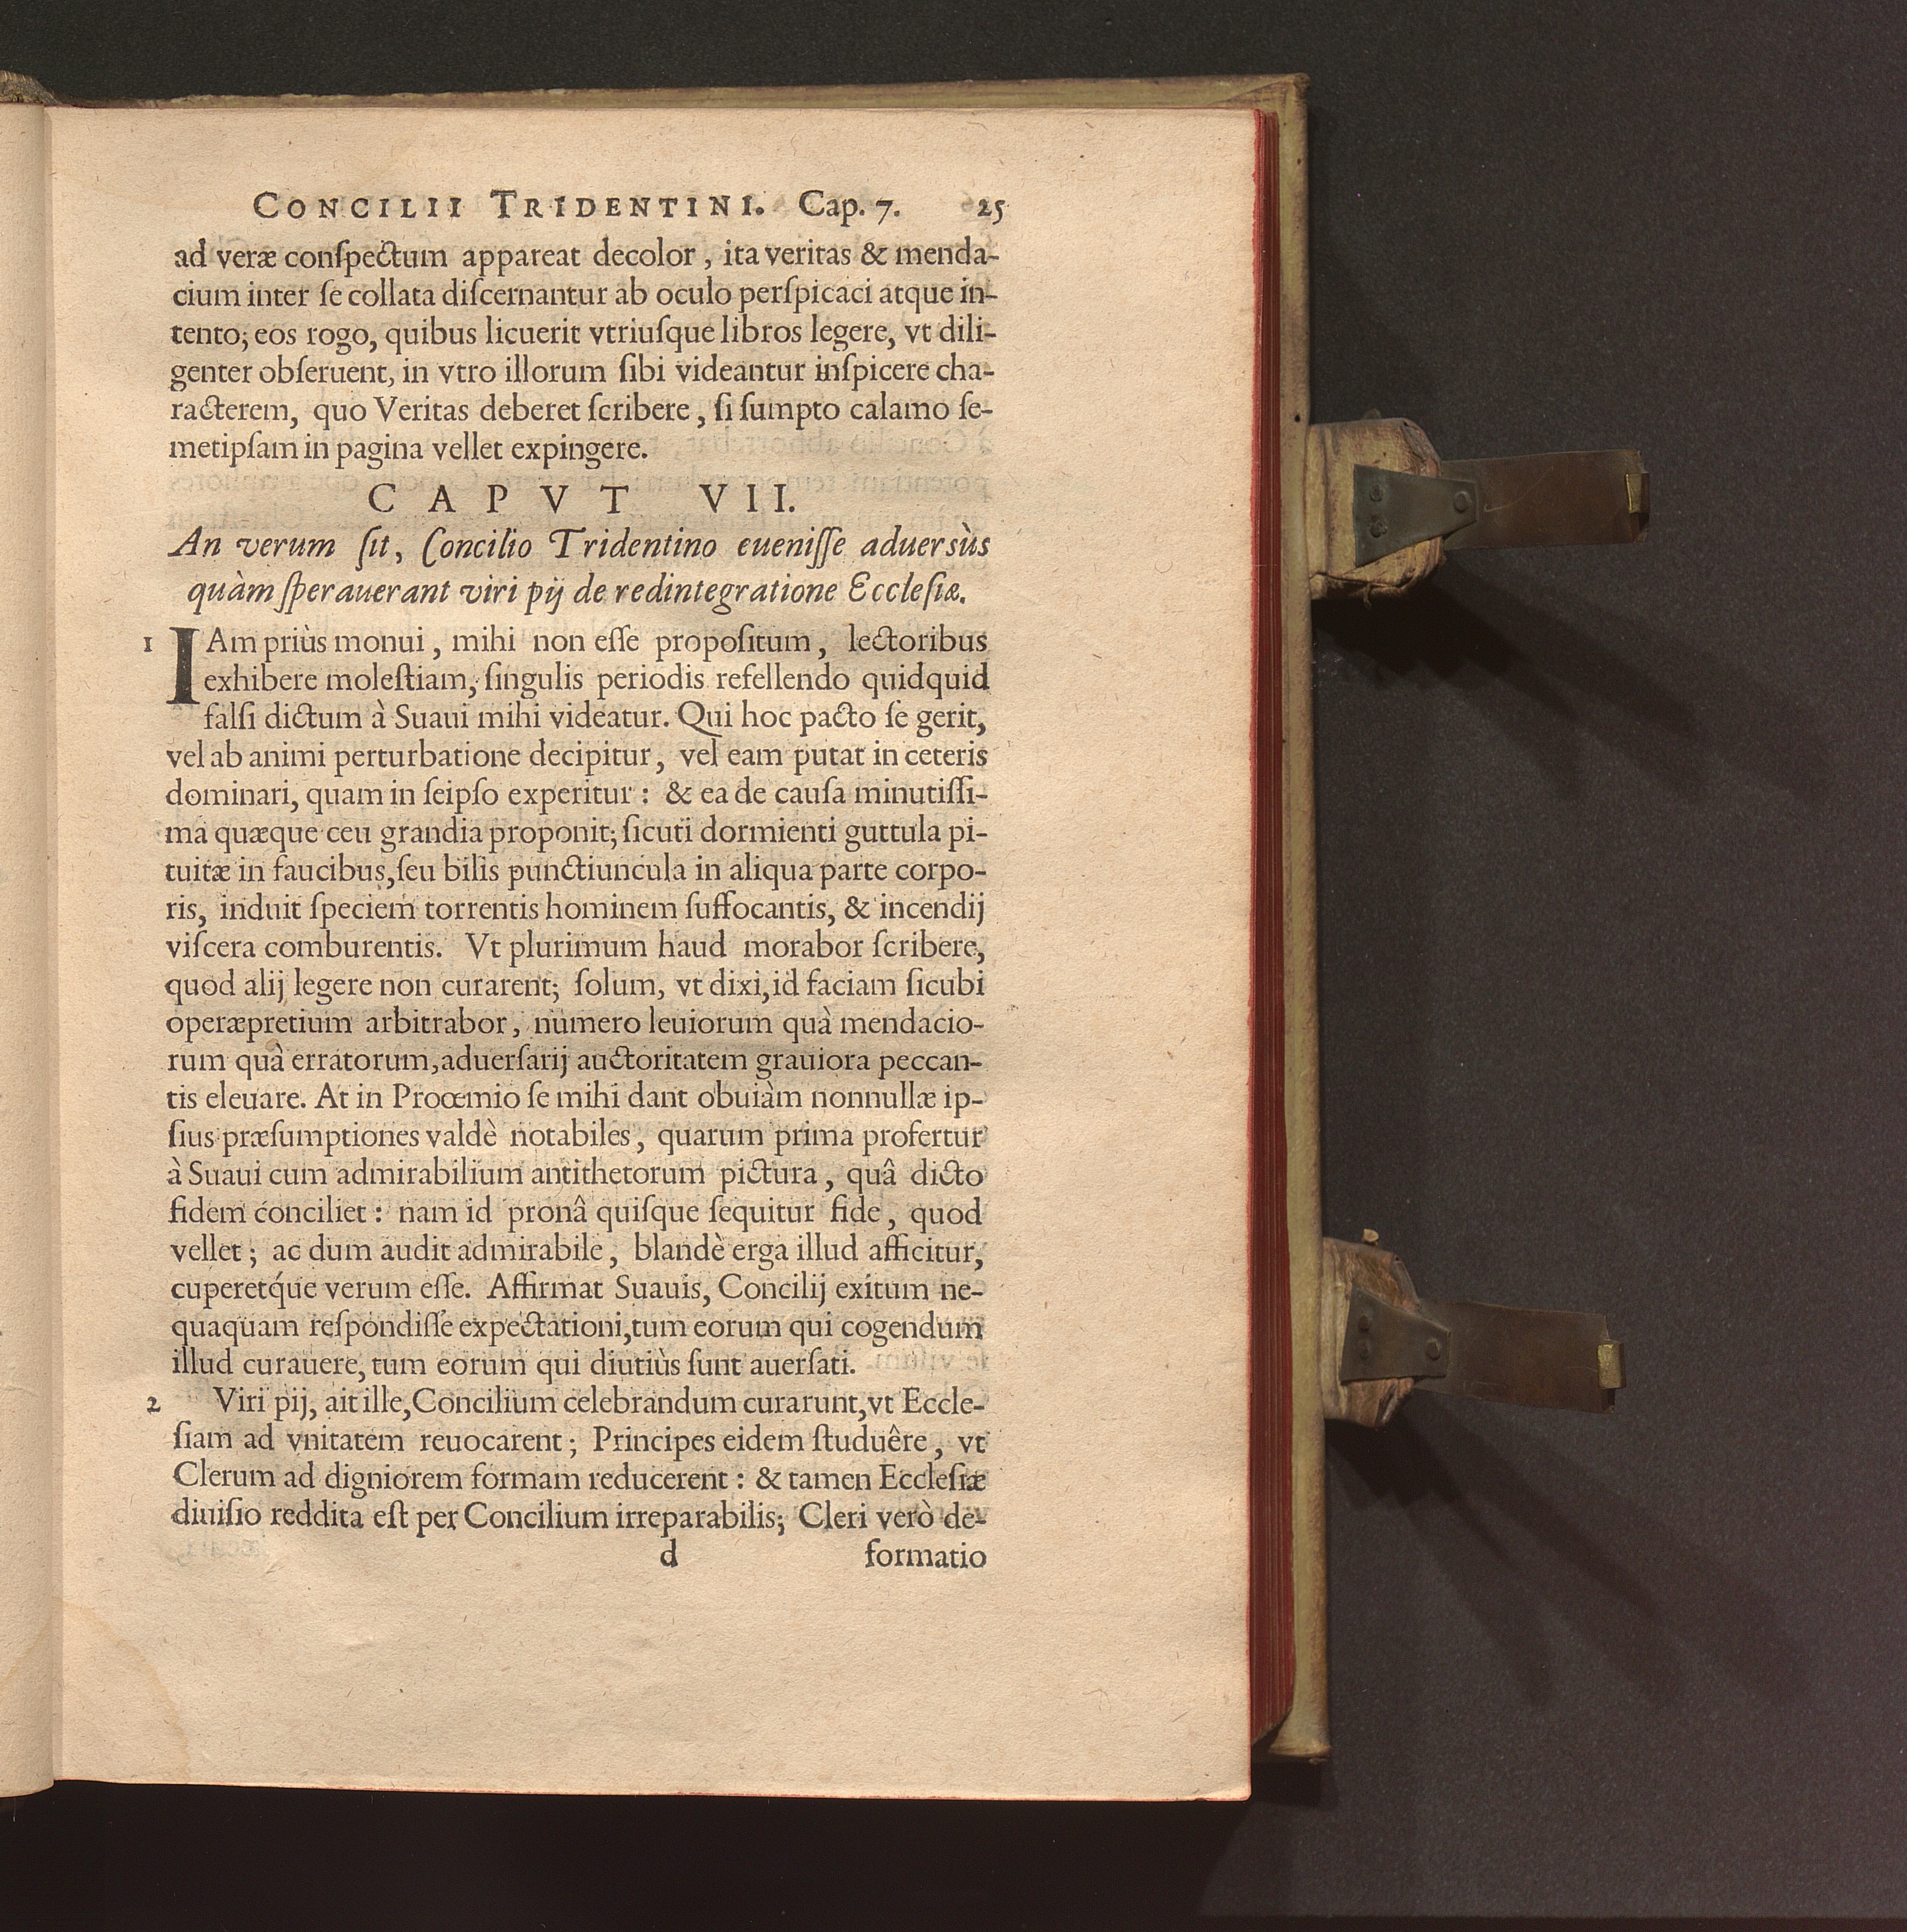 CONCILII TRIDENTINI. Cap. 7. 25
ad veræ conſpectum appareat decolor, ita veritas & menda-
cium inter ſe collata diſcernantur ab oculo perſpicaci atque in-
tento; eos rogo, quibus licuerit vtriuſque libros legere, vt dili-
genter obſeruent, in vtro illorum ſibi videantur inſpicere cha-
racterem, quo Veritas deberet ſcribere, ſi ſumpto calamo ſe-
metipſam in pagina vellet expingere.
CAPVT VII.
An verum ſit, Concilio Tridentino eueniſſe aduersùs
quàm ſperauerant viri pij de redintegratione Eccleſiæ.
1 IAm priùs monui, mihi non eſſe propoſitum, lectoribus
exhibere moleſtiam, ſingulis periodis refellendo quidquid
falſi dictum à Suaui mihi videatur. Qui hoc pacto ſe gerit,
vel ab animi perturbatione decipitur, vel eam putat in ceteris
dominari, quam in ſeipſo experitur: & ea de cauſa minutiſſi-
ma quæque ceu grandia proponit; ſicuti dormienti guttula pi-
tuitæ in faucibus, ſeu bilis punctiuncula in aliqua parte corpo-
ris, induit ſpeciem torrentis hominem ſuffocantis, & incendij
viſcera comburentis. Vt plurimum haud morabor ſcribere,
quod alij legere non curarent; ſolum, vt dixi, id faciam ſicubi
operæpretium arbitrabor, numero leuiorum quà mendacio-
rum quà erratorum, aduerſarij auctoritatem grauiora peccan-
tis eleuare. At in Proœmio ſe mihi dant obuiàm nonnullæ ip-
ſius præſumptiones valdè notabiles, quarum prima profertur
à Suaui cum admirabilium antithetorum pictura, quâ dicto
fidem conciliet: nam id pronâ quiſque ſequitur fide, quod
vellet; ac dum audit admirabile, blandè erga illud afficitur,
cuperetq́ue verum eſſe. Affirmat Suauis, Concilij exitum ne-
quaquam reſpondiſſe expectationi, tum eorum qui cogendum
illud curauere, tum eorum qui diutiùs ſunt auerſati.
2 Viri pij, ait ille, Concilium celebrandum curarunt, vt Eccle-
ſiam ad vnitatem reuocarent; Principes eidem ſtuduêre, vt
Clerum ad digniorem formam reducerent: & tamen Eccleſiæ
diuiſio reddita eſt per Concilium irreparabilis; Cleri verò de-
d formatio